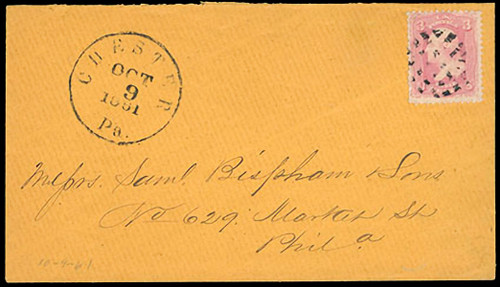 CHESTER
OCT
9
1861
Pa.
3 3
Messrs. Saml. Bispham & Sons
No 629. Market St
Phila
10-9-61